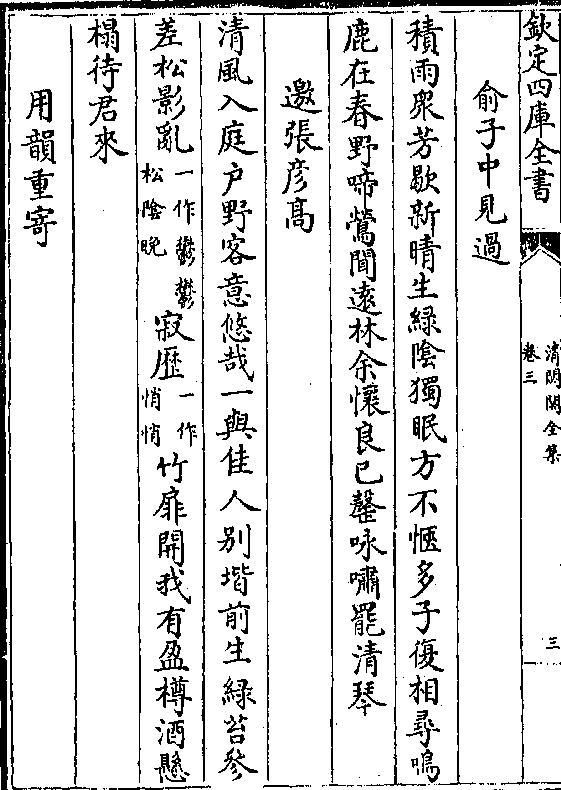 欽定四庫全書
清閟閣全集
卷三
三
俞子中見過
積雨眾芳歇新晴生綠陰獨眠方不愜多子復相尋鳴
鹿在春野啼鶯聞遠林余懷良已罄咏嘯罷清琴
邀張彥高
清風入庭户野客意悠哉一與佳人别堦前生綠苔參
差松影亂一作鬱鬱松陰晚寂歷一作悄悄竹扉開我有盈樽酒懸
榻待君來
用韻重寄